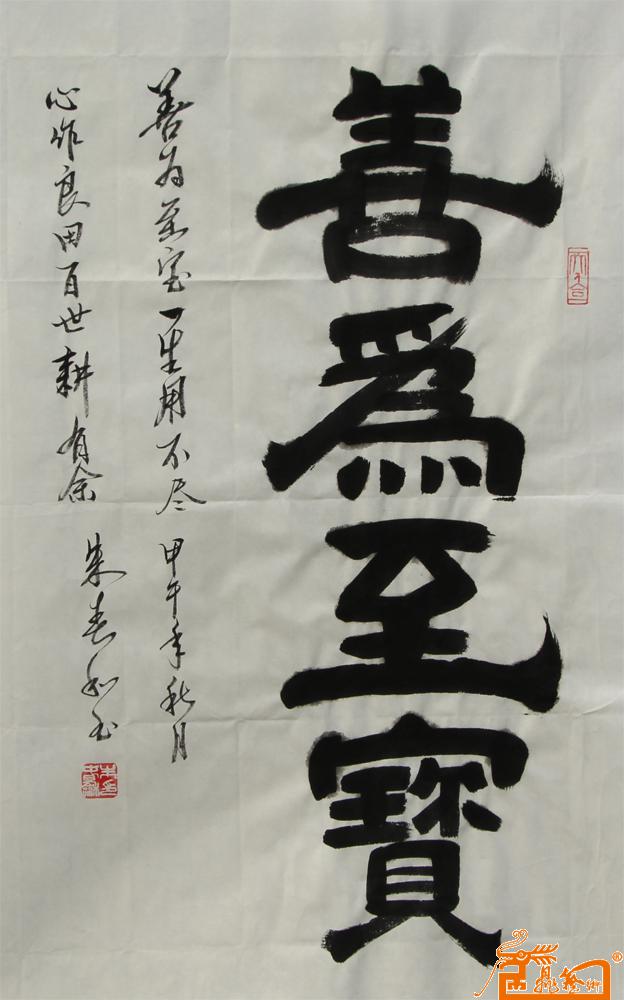 善爲至寶
善为至宝一生用不尽 甲午年秋月
心作良田百世耕有余 朱春和书